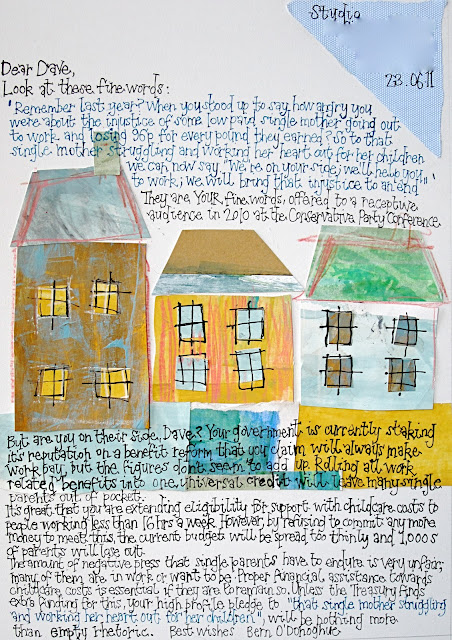 Studio
23.06.11
Dear Dave,
Look at these fine words:
"Remember last year? When you stood up to say how angry you
were about the injustice of some low paid single mother going out
to work and losing 96p for every pound they earned? So to that
single mother struggling and working her heart out for her children
we can now say "We're on your side, we'll help you
to work, we will bring that injustice to an end".'
They are your fine words, offered to a receptive
audience in 2010 at the Conservative Party Conference
But are you on their side, Dave? Your government is currently staking
it's reputation on a benefit reform that you claim will always make
work pay, but the figures don't seem to add up. Rolling all work
related benefits into one universal credit will leave many single
parents out of pocket.
It's great that you are extending eligibility for support with childcare costs to
people working less than 16 hrs a week. However, by refusing to commit any more
money to meet this, the current budget will be spread too thinly and 1,000s
of parents will lose out.
The amount of negative press that single parents have to endure is very unfair;
many of them are in work or want to be. Proper financial assistance towards
childcare costs is essential if they are to remain so. Unless the Treasury finds
extra funding for this, your high profile pledge to "that single mother struggling
and working her heart out for her children", will be nothing more
than empty rhetoric. Best wishes Bern O'Donoghue